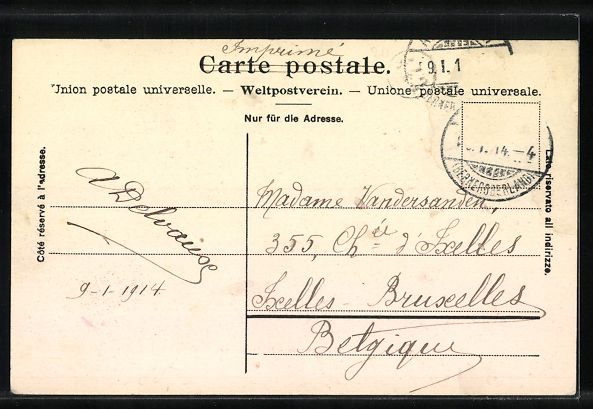 Imprimé
Carte postale.
Union postale universelle. — Weltpostverein. — Unione postale universale.
Nur für die Adresse.
Côté réservé à l'adresse.
Lato riservato all' indirizzo.
9. I. 1
14. - 4
(BERNEROBERLAND)
A Delvaux
9-1-1914
Madame Vandersanden,
355, Chée d'Ixelles
Ixelles - Bruxelles
Belgique